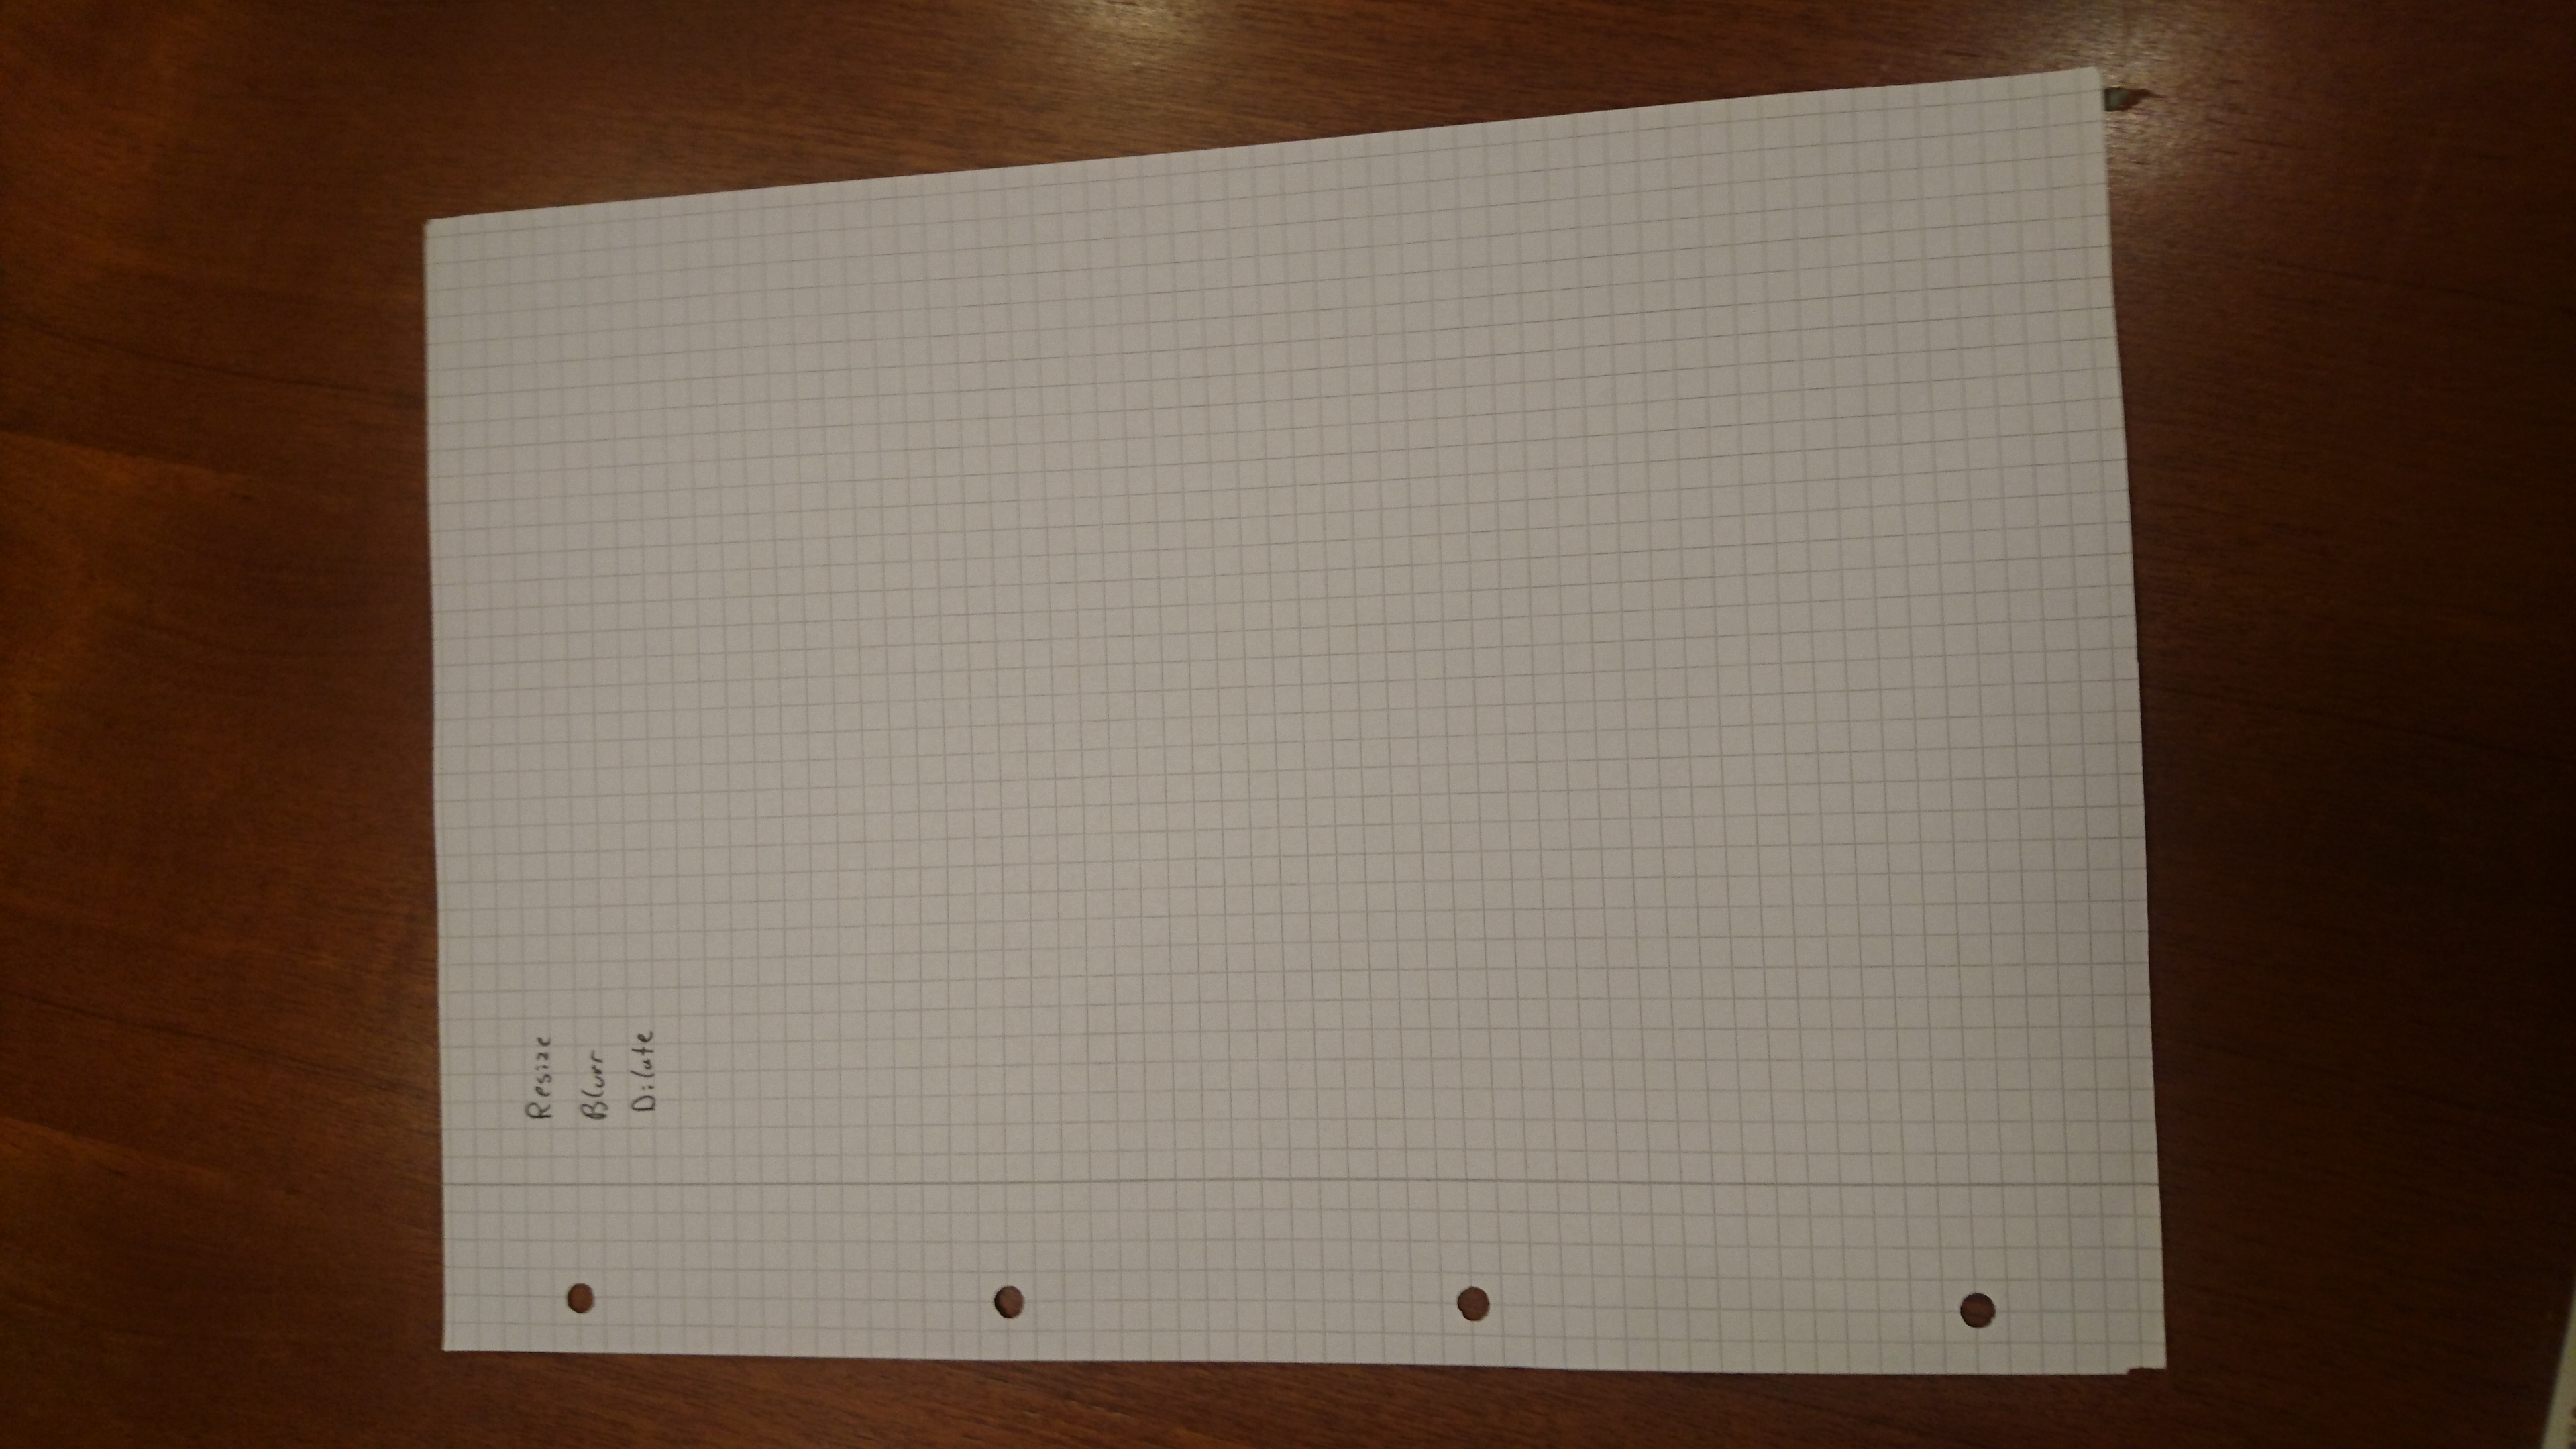 Resize
Blurr
Dilute